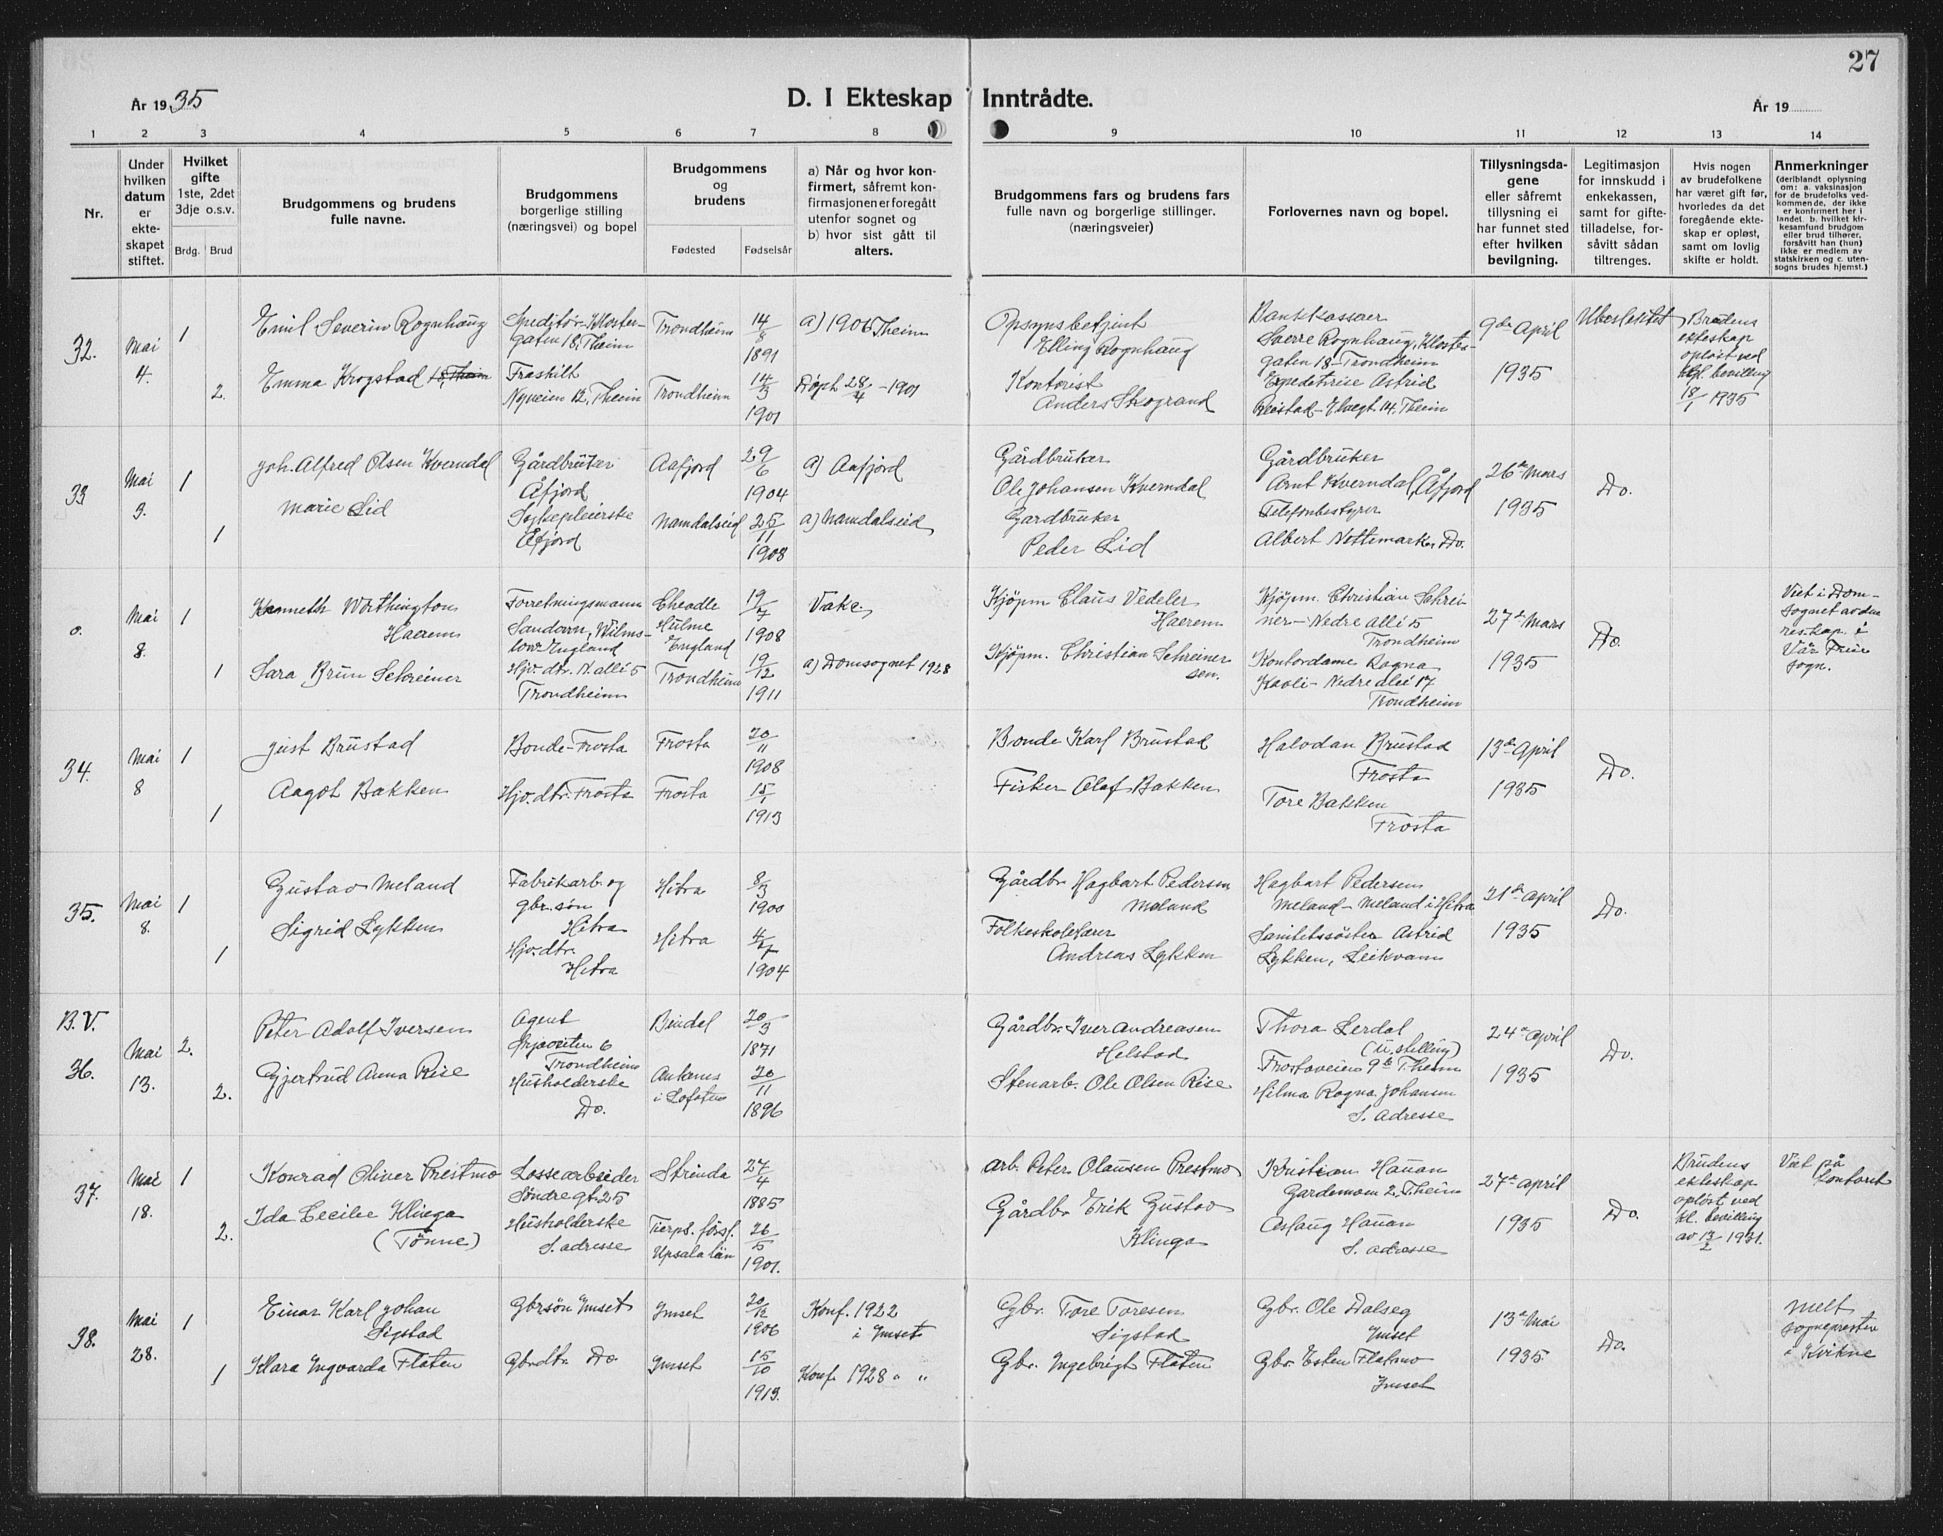 27
År 1935
D. I Ekteskap Inntrådte.
År 19
1 2 3 4 5 6 7 8 9 10 11 12 13 14
Nr.
Under hvilken datum er ekteskapet stiftet.
Hvilket gifte 1ste, 2det 3dje o.s.v.
Brdg. Brud
Brudgommens og brudens fulle navne.
Brudgommens borgerlige stilling (næringsvei) og bopel
Brudgommens og brudens
Fødested Fødselsår
a) Når og hvor konfirmert, såfremt konfirmasjonen er foregått utenfor sognet og b) hvor sist gått til alters.
Brudgommens fars og brudens fars fulle navn og borgerlige stillinger. (næringsveier)
Forlovernes navn og bopel.
Tillysningsdagene eller såfremt tillysning ei har funnet sted efter hvilken bevilgning.
Legitimasjon for innskudd i enkekassen, samt for giftetilladelse, forsåvitt sådan tiltrenges.
Hvis nogen av brudefolkene har været gift før, hvorledes da det foregående ekteskap er opløst, samt om lovlig skifte er holdt.
Anmerkninger (deriblandt oplysning om: a. vaksinasjon for de brudefolks vedkommende, der ikke er konfirmert her i landet. b. hvilket kirkesamfund brudgom eller brud tilhører, forsåvitt han (hun) ikke er medlem av statskirken og c. utensogns brudes hjemst.)
32. Mai 4. 1
Emil Severin Rognhaug
Speditør-Klostergaten 18, Theim
Trondheim 14/8 1891
a) 1906 Theim
Opsynsbetjent
Elling Rognhaug
Bankkasserer
Sverre Rognhaug, Klostergaten 18 - Trondheim
9de April 1935
Ubeslektet
Brudens ekteskap opløst ved kgl. bevilling 18/1 1935
2. Emma Krogstad
Fraskilt
Nyveien 12, Theim
Trondheim 14/3 1901
Døpt 28/4 - 1901
Kontorist
Anders Skogrand
Expeditrise Astrid
14. Theim
33 Mai 3. 1
Joh. Alfred Olsen Kverndal
Gårdbruker
Åfjord
Aafjord 29/6 1904
a) Aafjord
Gårdbruker
Ole Johansen Kverndal
Gårdbruker
Arnt Kverndal, Åfjord
26de Mars 1935
Do.
1 Marie Lid
Sykepleierske
Åfjord
Namdalseid 25/11 1908
a) Namdalseid
Gardbruker
Peder Lid
Telefonbestyrer
Albert Nottemark Do.
o. Mai 8. 1
Kenneth Worthington Haerem
Forretningsmann
Sandown, Wilmslow England
Cheadle Hulme England 19/7 1908
Vake.
Kjøpm Claus Vedeler Haerem
Kjøpm. Christian Schreiner - Nedre allé 5 Trondheim
27de Mars 1935
Do.
Viet i Domsognet av den res. kap. i Vår Frue sogn.
1 Sara Brun Schreiner
Hjv. dtr. N. allé 5 Trondheim
Trondheim 19/12 1911
a) Domsognet 1928
Kjøpm. Christian Schreiner sen.
Kontordame Ragna Kavli - Nedre allé 17 Trondheim
34. Mai 8 1
Just Brustad
Bonde - Frosta
Frosta 20/11 1908
Bonde Karl Brustad
Halvdan Brustad
Frosta
13de April 1935
Do.
1 Aagot Bakken
Hjv. dtr. Frosta
Frosta 15/1 1913
Fisker Olaf Bakken
Tore Bakken
Frosta
35. Mai 8. 1
Gustav Meland
Fabrikarb. og gbr. søn Hitra
Hitra 8/3 1900
Gårdbr. Hagbart Pedersen Meland
Hagbart Pedersen Meland - Meland i Hitra
21de April 1935
Do.
1 Sigrid Lykken
Hjv. dtr. Hitra
Hitra 4/7 1904
Folkeskolelærer
Andreas Lykken
Sanitetssøster Astrid Lykken, Leikvam
B.V.
36. Mai 13. 2.
Peter Adolf Iversen
Agent
6 Trondheim
Bindal 20/3 1871
Gårdbr. Iver Andreasen Helstad
Thora Lerdal
(u. stilling)
Frostaveien 9b Theim
24de April 1935
Do.
2. Gjertrud Anna Rise
Husholderske
Do.
i Lofoten 20/11 1896
Stenarb. Ole Olsen Rise
Hilma Ragna Johansen
S. adresse
37. Mai 18. 1
Konrad Oliver Prestmo
Lossearbeider
Søndregt. 25
Strinda 27/4 1885
arb. Peter Olausen Prestmo
Kristian Hauan
Gardemoen 2, Theim
27de April 1935
Do.
Brudens ekteskap opløst ved kl. bevilling av 13/2 1931.
Viet på kontoret
2. Ida Cecilie Klinga
(Tønne)
Husholderske
S. adresse
Tierps. förs. Upsala län 26/5 1901.
Gårdbr Erik Gustav Klinga
Aslaug Hauan
S. adresse
38. Mai 28. 1
Einar Karl Johan Sigstad
Gbrsøn Innset
Innset 20/12 1906
Konf. 1922 i Innset
Gbr. Tore Toresen Sigstad
Gbr. Ole Dalseg
Innset
13de Mai 1935.
Do.
melt sognepresten i Kvikne
1 Klara Ingvarda Flaten
Gbrdtr. Do
Innset 15/10 1913.
Konf. 1928 " "
Gbr. Ingebrigt Flaten
Gbr. Esten Flatmo
Innset